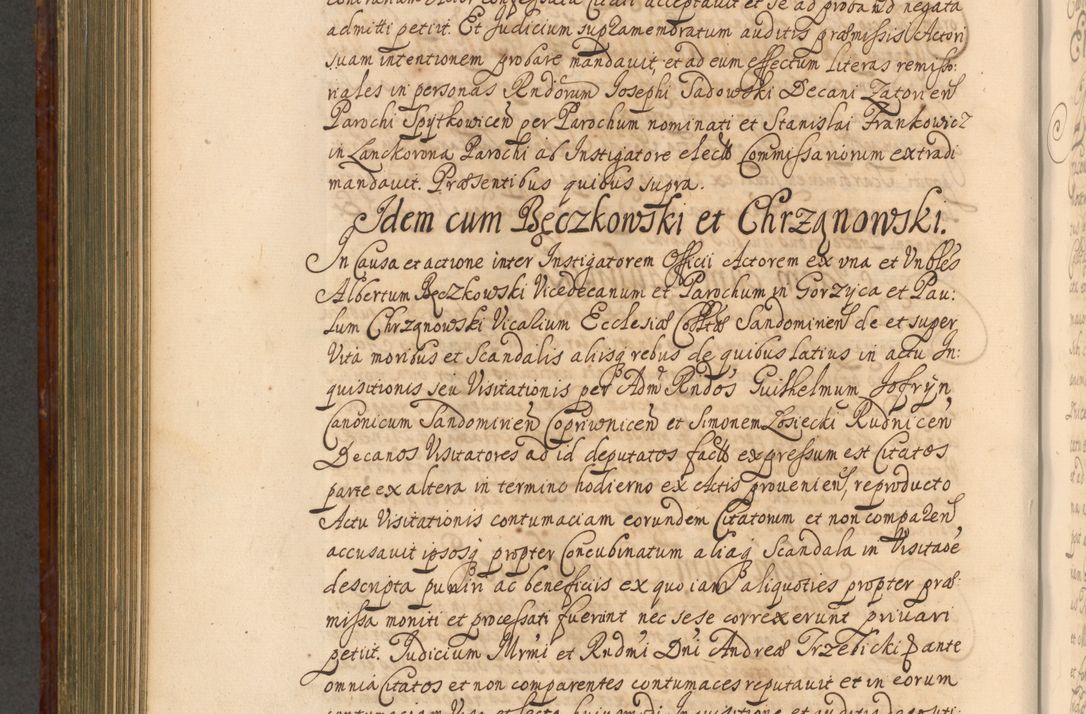 contrarium Actor confessata quali acceptavit et se ad proband negata
admitti petiit. Et Judicium supramemoratum auditis præmissis Actori
suam intentionem probare mandauit, et ad eum effectum literas remisso:
riales in personas Rndorum Josephi Sadowski Decani Zatorien̄
Parochi Spytkowicen̄ per Parochum nominati et Stanislai Frankowicz
in Lanckorona Parochi ab Instigatore elect Commissariorum extradi
mandauit. Præsentibus quibus supra.
Idem cum Bęczkowski et Chrząnowski.
In Causa et actione inter Instigatorem Officii Actorem ex vna et Vnbles
Albertum Bęczkowski Vicedecanum et Parochum in Gorzyca et Pau:
lum Chrząnowski Vicalium Ecclesiæ Collæ Sandomirien̄ de et super
Vita moribus et Scandalis aliisq rebus de quibus latius in actu In:
quisitionis seu Visitationis per Adm Rndos Guilhelmum Jofryn
Canonicum Sandomirien̄ Coprivnicen̄ et Simonem Losiecki Rudnicen̄
Decanos Visitatores ad id deputatos fact expressum est Citatos
parte ex altera in termino hodierno ex Actis prouenien̄, reproducto
Actu Visitationis contumaciam eorundem Citatorum et non comparen̄
accusauit ipsosq propter Concubinatum aliaq Scandala in Visitaōe
descripta puniri ac beneficiis ex quo iam aliquoties propter præ:
missa moniti et processati fuerint nec sese correxerunt priuari
petiit. Judicium Mrmi et Rndmi Dni Andreæ Trzebicki Pante
omnia Citatos et non comparentes contumaces reputauit et in eorum